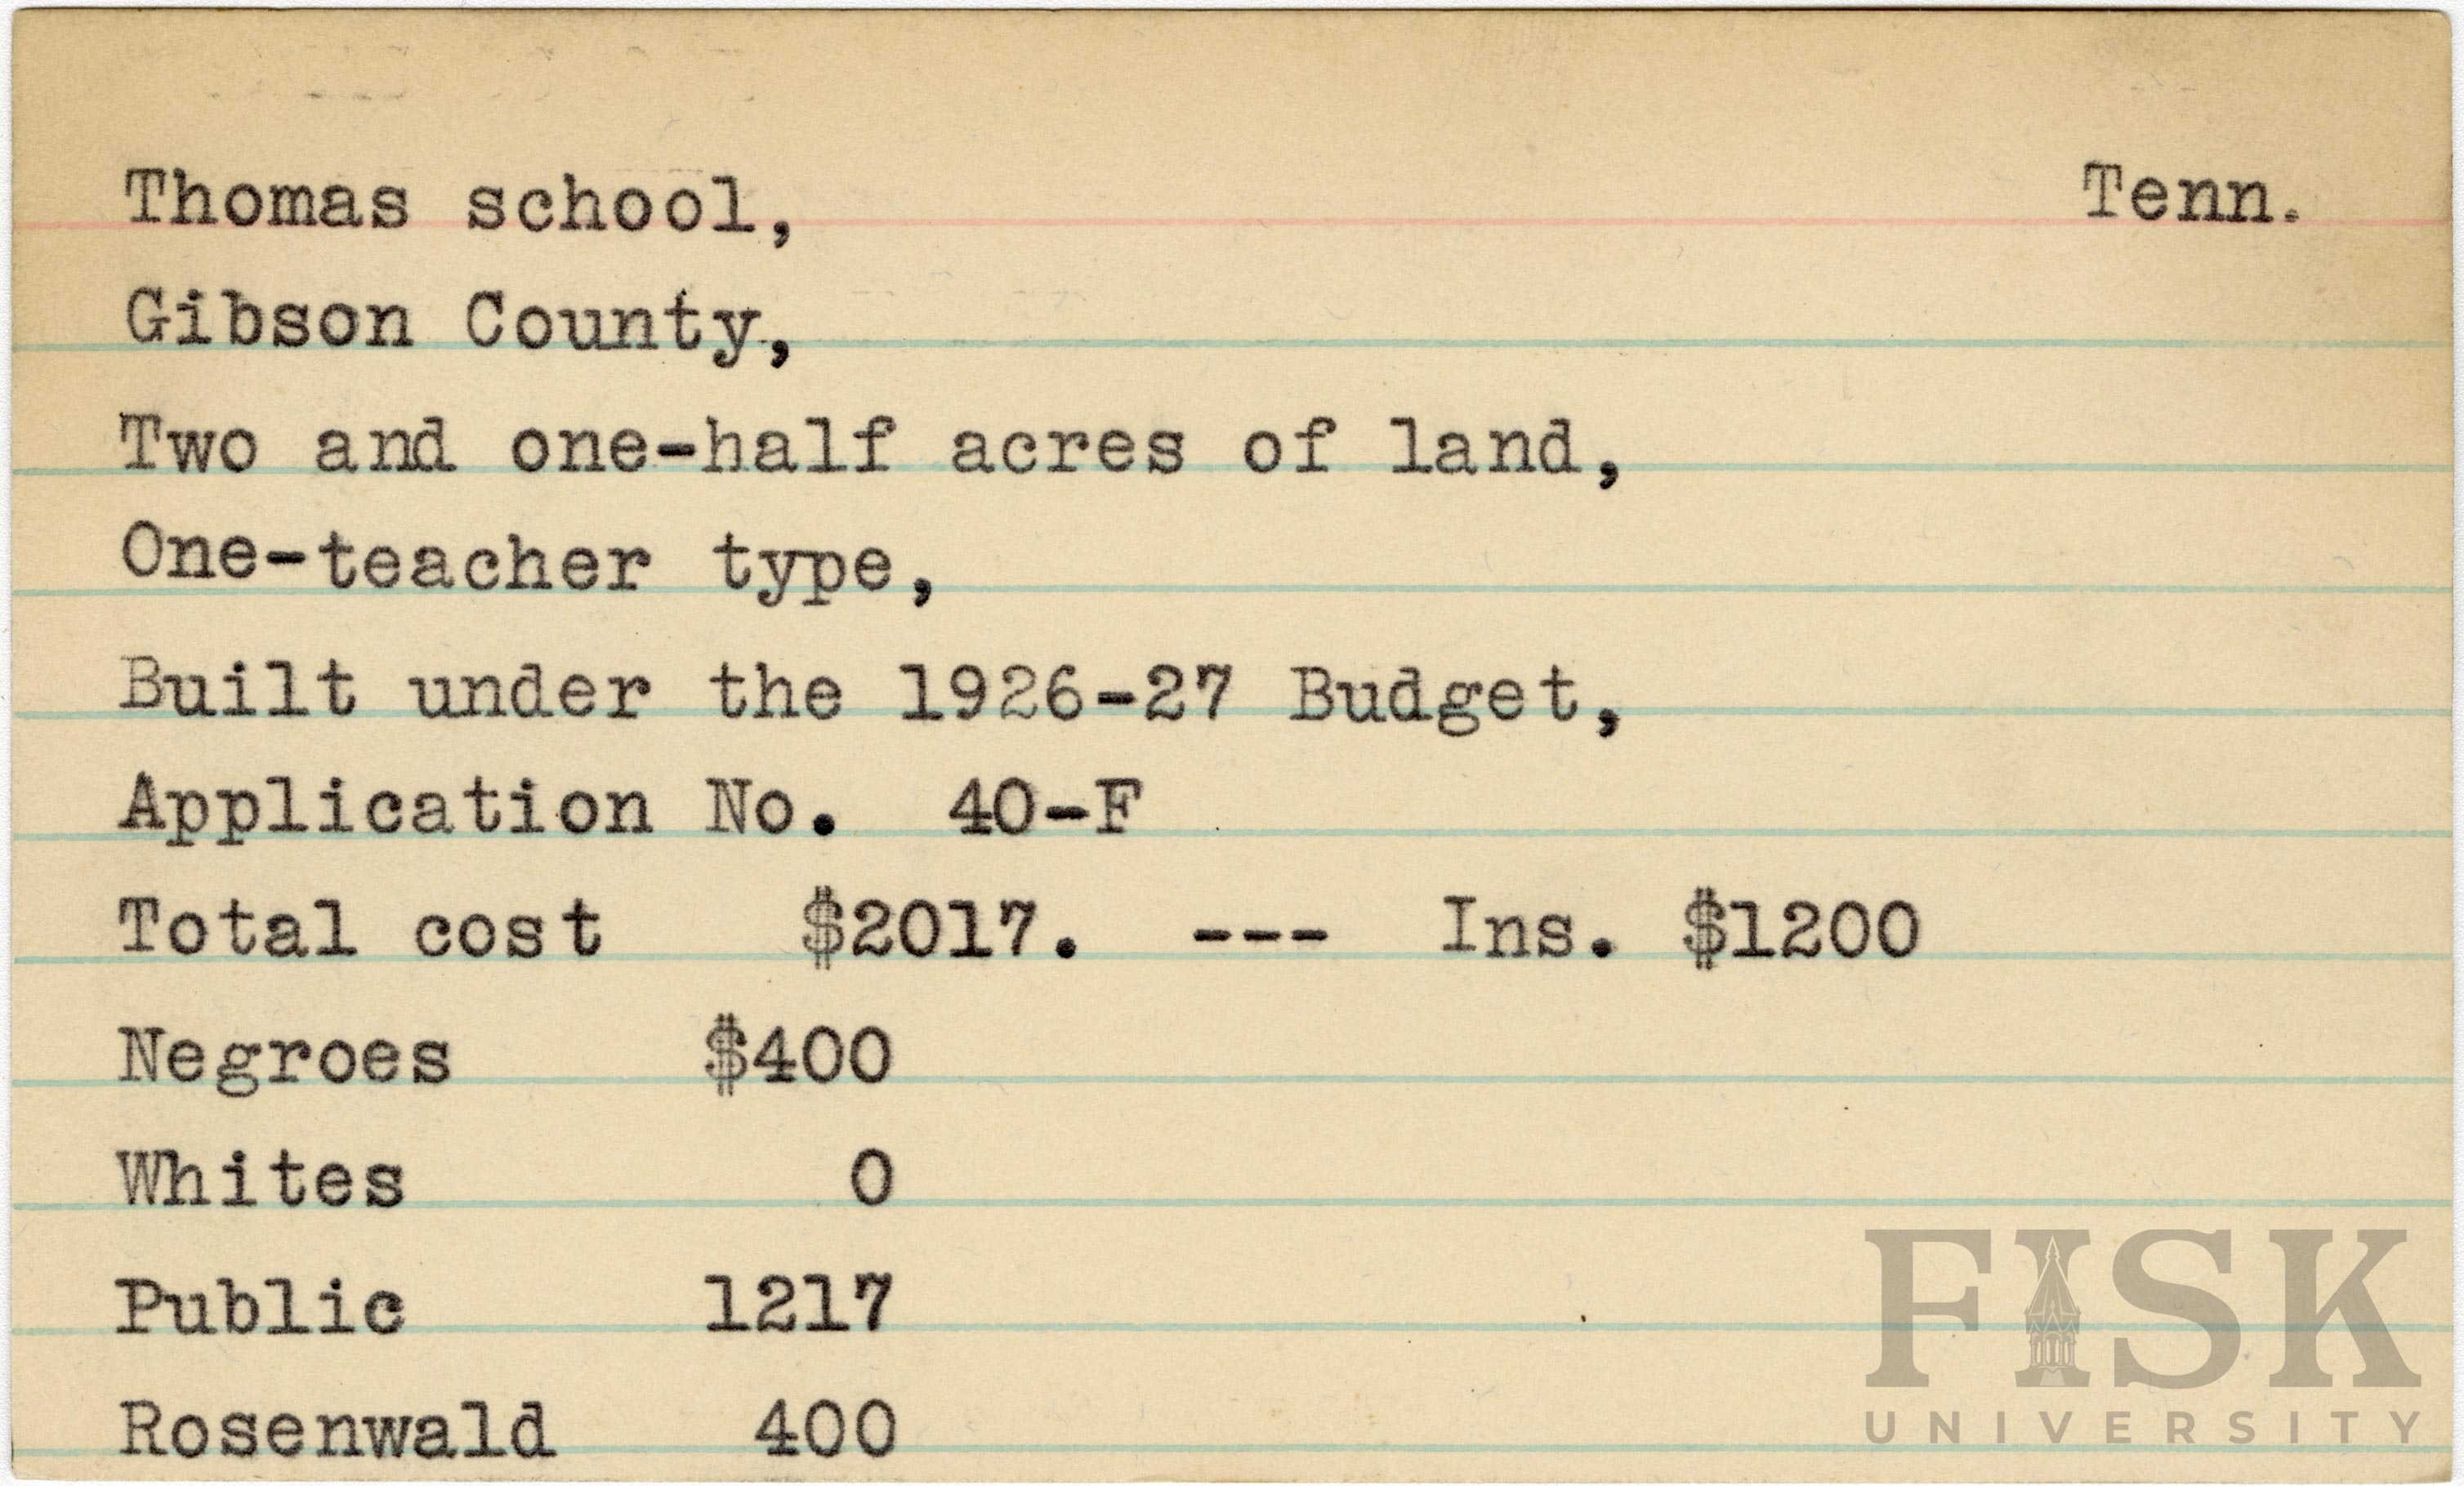 Thomas school, Tenn.
Gibson County,
Two and one-half acres of land,
One-teacher type,
Built under the 1926-27 Budget,
Application No. 40-F
Total cost $2017. --- Ins. $1200
Negroes $400
Whites 0
Public 1217
Rosenwald 400
FISK
UNIVERSITY